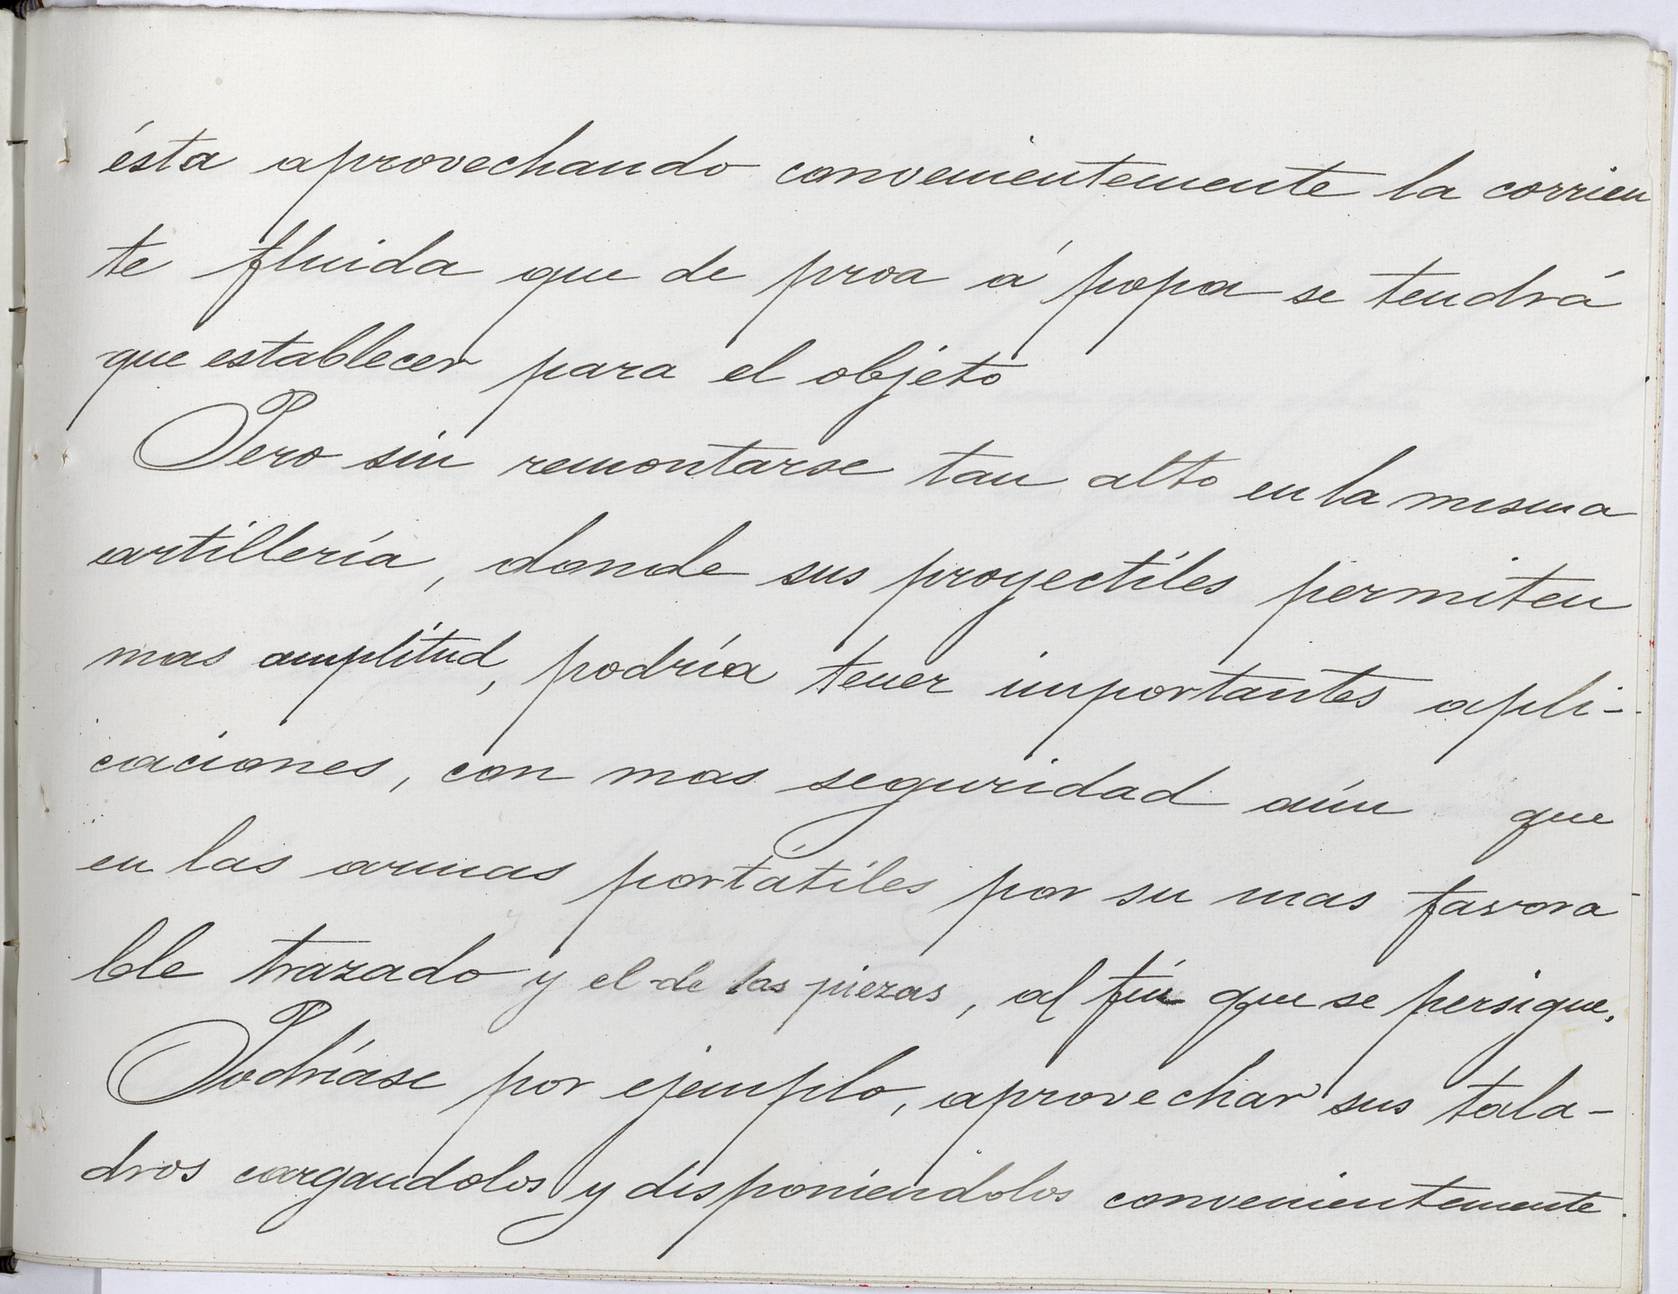 ésta aprovechando convenientemente la corrien
te fluida que de proa á popa se tendrá
que establecer para el objeto
Pero sin remontarse tan alto en la misma
artillería, donde sus proyectiles permiten
mas amplitud, podría tener importantes apli-
caciones, con mas seguridad aún que
en las armas portátiles por su mas favora
ble trazado y el de las piezas, al fin que se persigue.
Podríase por ejemplo, aprovechar sus tala-
dros cargandolos y disponiéndolos convenientemente.